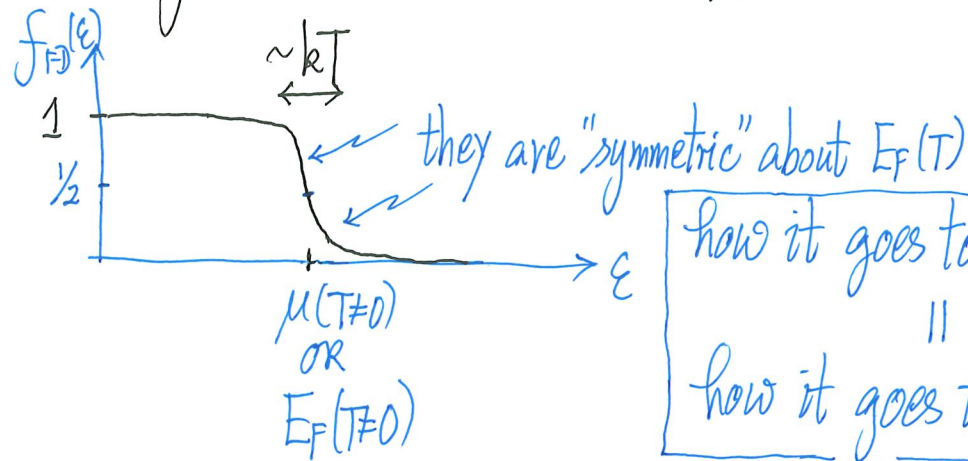 f_FD(ε)
~kT
1
1/2
they are "symmetric" about E_F(T)
ε
μ(T≠0)
OR
E_F(T≠0)
how it goes
||
how it goes